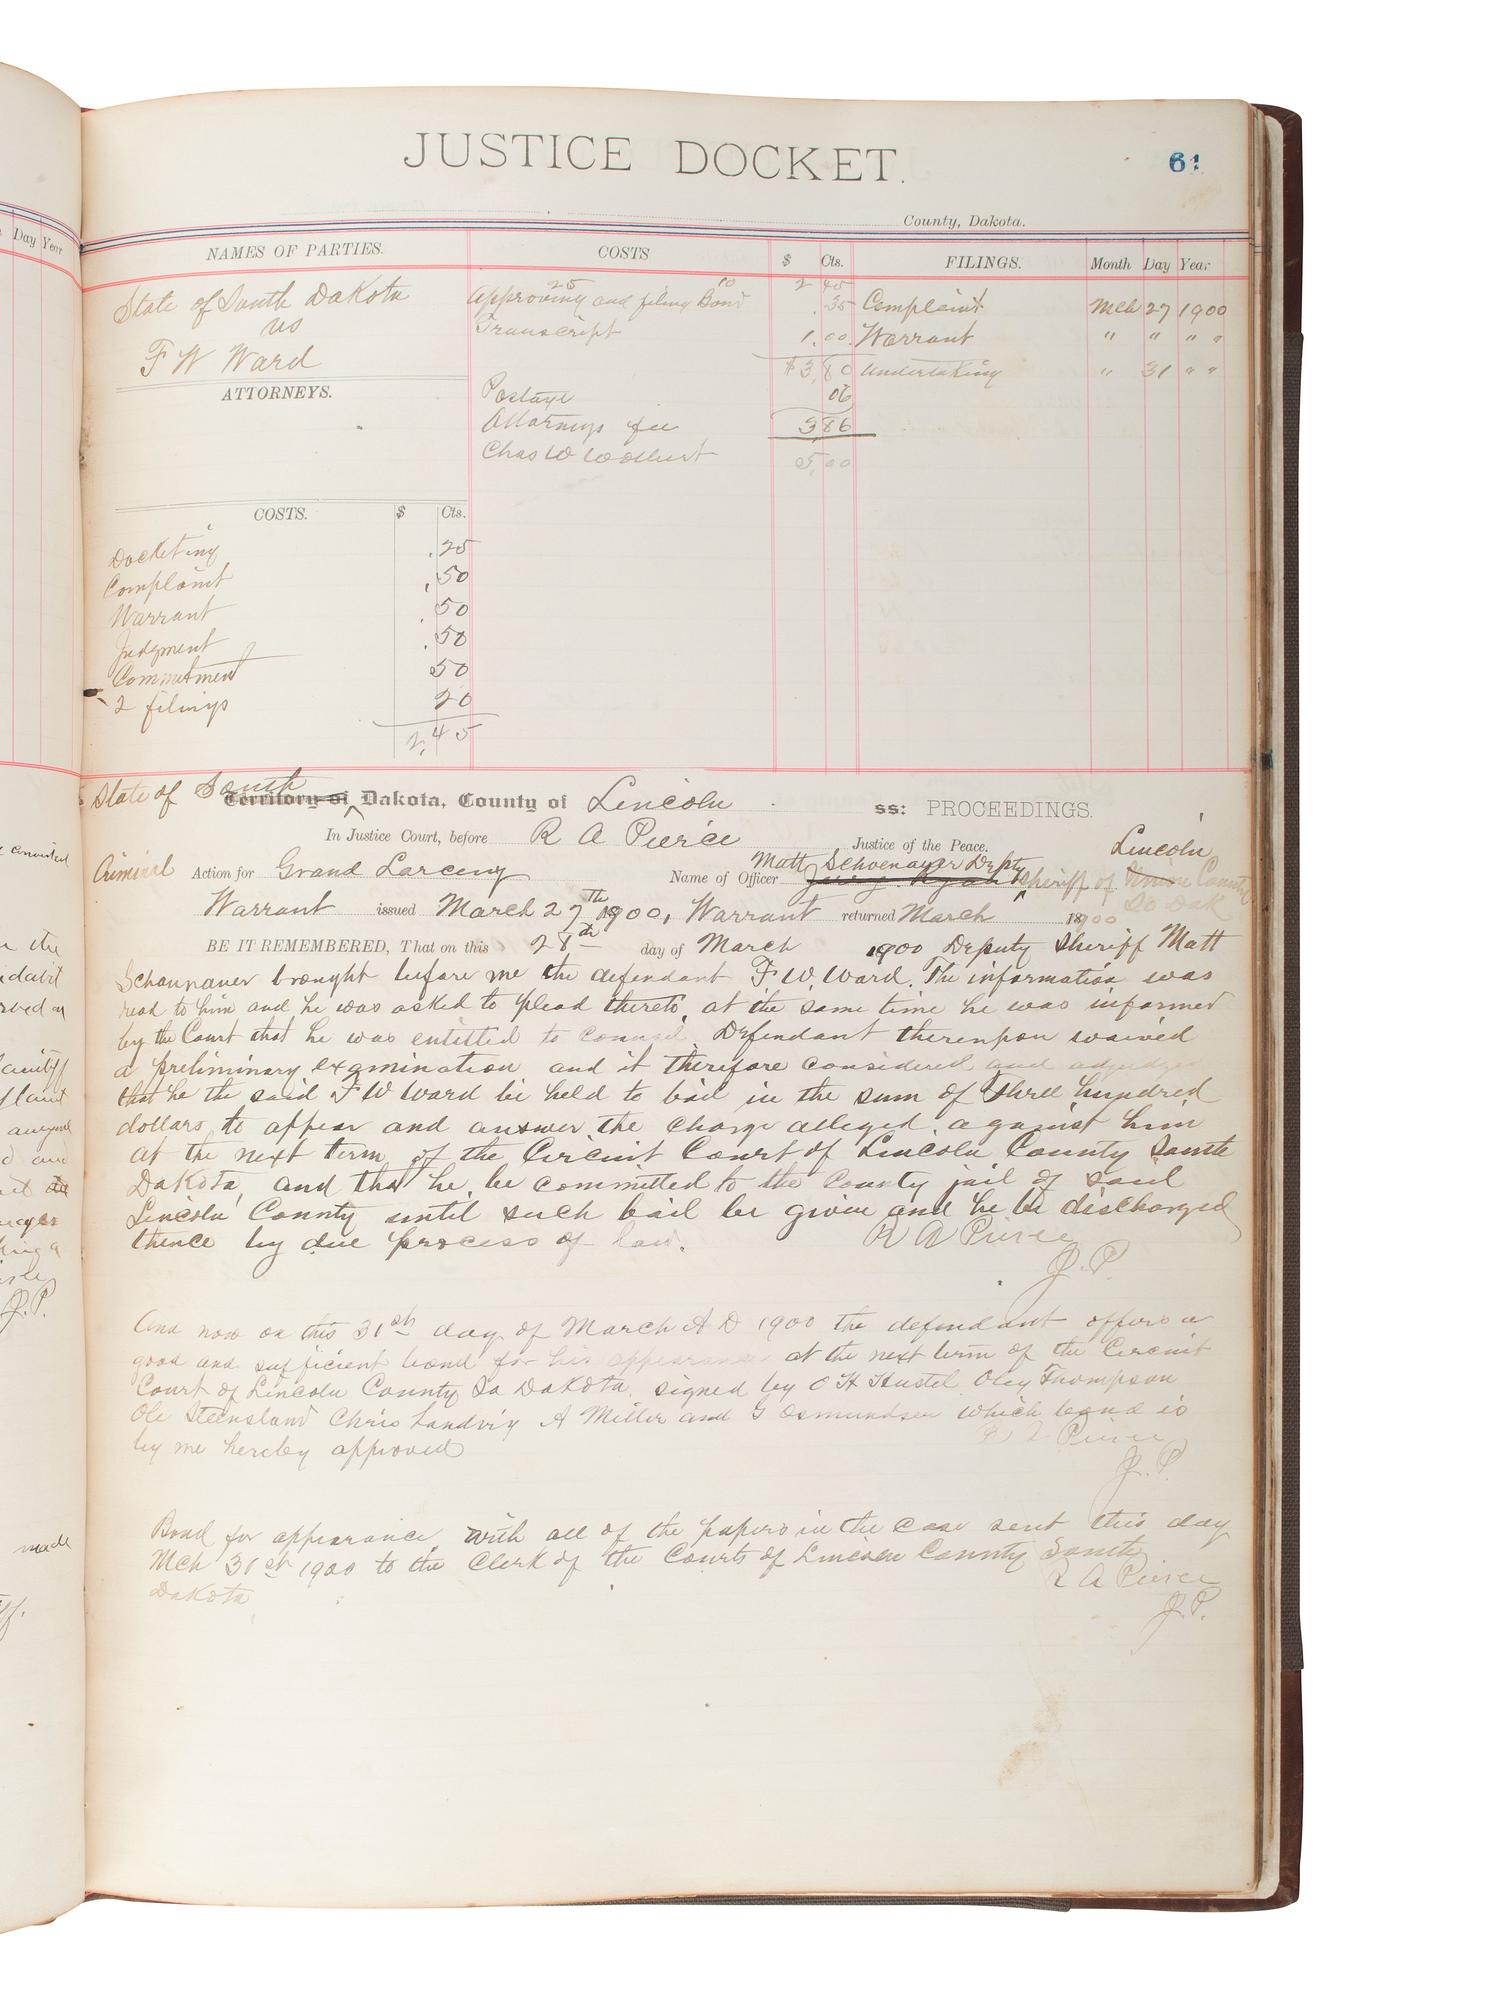 JUSTICE DOCKET.
61
County, Dakota.
Day Year
NAMES OF PARTIES.
COSTS
$ Cts.
FILINGS.
Month Day Year
State of South Dakota
vs
F W Ward
25 10 2 45
Approving and filing Bond .35
Transcript 1.00
$3,80
Postage 06
Attorneys fee 3 86
5,00
Complaint Mch 27 1900
Warrant " " " "
Undertaking " 31 " "
ATTORNEYS.
COSTS. $ Cts.
Docketing .25
Complaint .50
Warrant .50
Judgment .50
Commitment 50
2 filings 20
2,45
State of South Territory of Dakota, County of Lincoln ss: PROCEEDINGS.
In Justice Court, before R A Pierce Justice of the Peace.
Criminal Action for Grand Larceny Name of Officer Matt Schoenauer Depty Sheriff of Lincoln County So Dak
Warrant issued March 27th 1900, Warrant returned March 1900
BE IT REMEMBERED, That on this 28th day of March 1900 Deputy Sheriff Matt
Schaunauer brought before me the defendant F. W. Ward. The information was
read to him and he was asked to plead thereto, at the same time he was informed
by the Court that he was entitled to counsel. Defendant thereupon waived
a preliminary examination and it therefore considered and adjudged
that he the said F W Ward be held to bail in the sum of three hundred
dollars, to appear and answer the charge alleged against him
at the next term of the Circuit Court of Lincoln County South
Dakota, and that he be committed to the County jail of said
Lincoln County until such bail be given and he be discharged
thence by due process of law. R A Pierce
J. P.
And now on this 31st day of March A D 1900 the defendant offers a
good and sufficient bond for his appearance at the next term of the Circuit
Court of Lincoln County So Dakota, signed by O H Hustel Oley Thompson
Ole Steensland Chris Landvig A Miller and G Osmundsen which bond is
by me hereby approved R A Pierce
J. P.
Bond for appearance with all of the papers in the case sent this day
Mch 31st 1900 to the Clerk of the Courts of Lincoln County South
Dakota R A Pierce
J. P.
J.P.
made